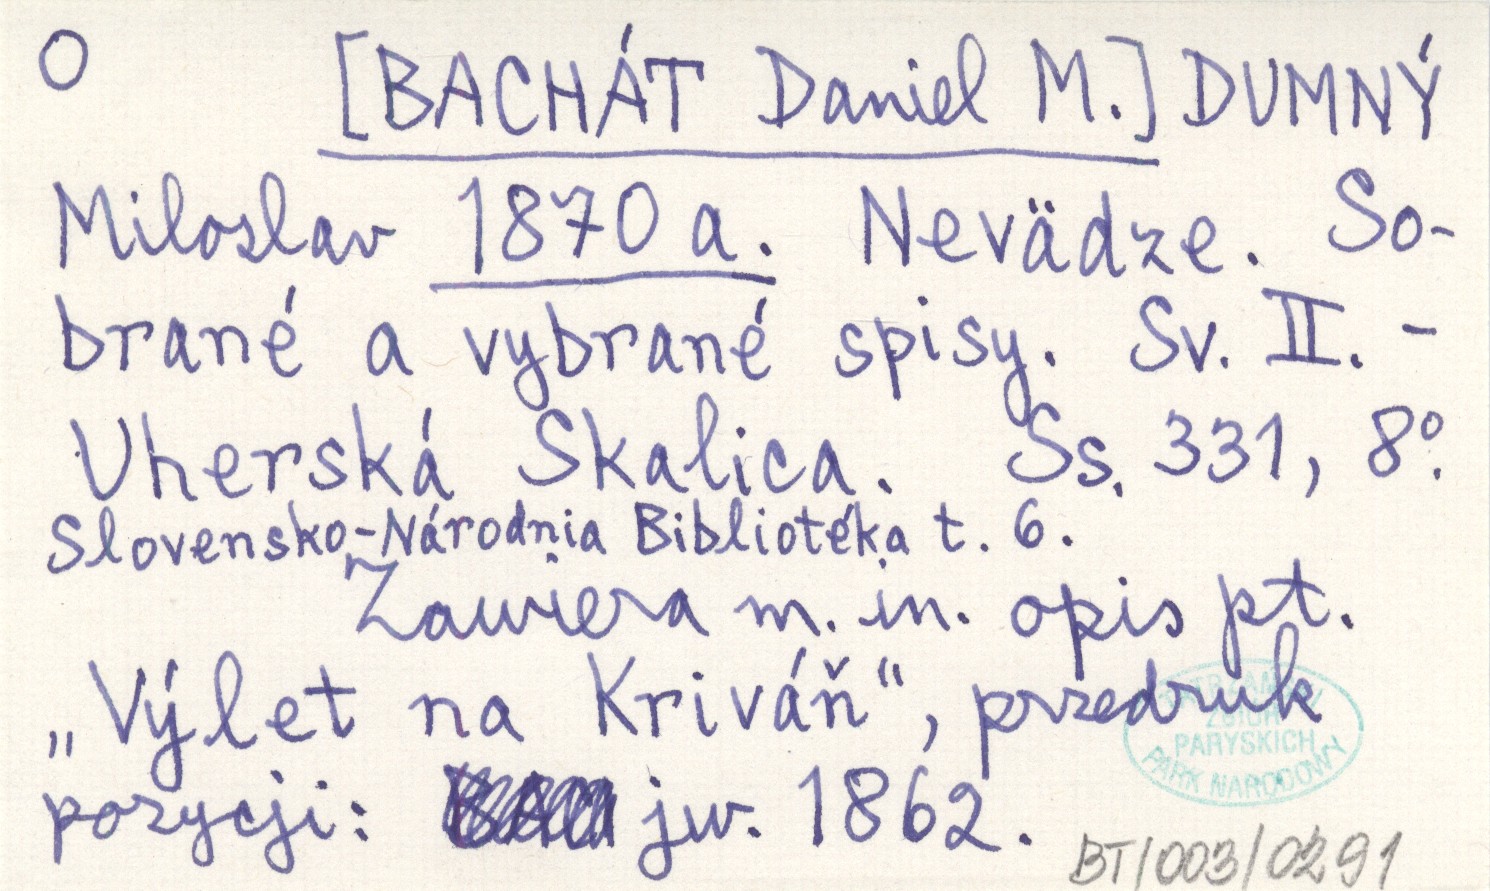 O [BACHÁT Daniel M.] DUMNÝ
Miloslav 1870 a. Nevädze. So-
brané a vybrané spisy. Sv. II. -
Uherská Skalica. Ss. 331, 8°.
Slovensko-Národnia Bibliotéka t. 6.
Zawiera m. in. opis pt.
„Výlet na Kriváň“, przedruk
pozycji: jw. 1862.
PARYSKICH
PARK NARODOWY
BT/003/0291